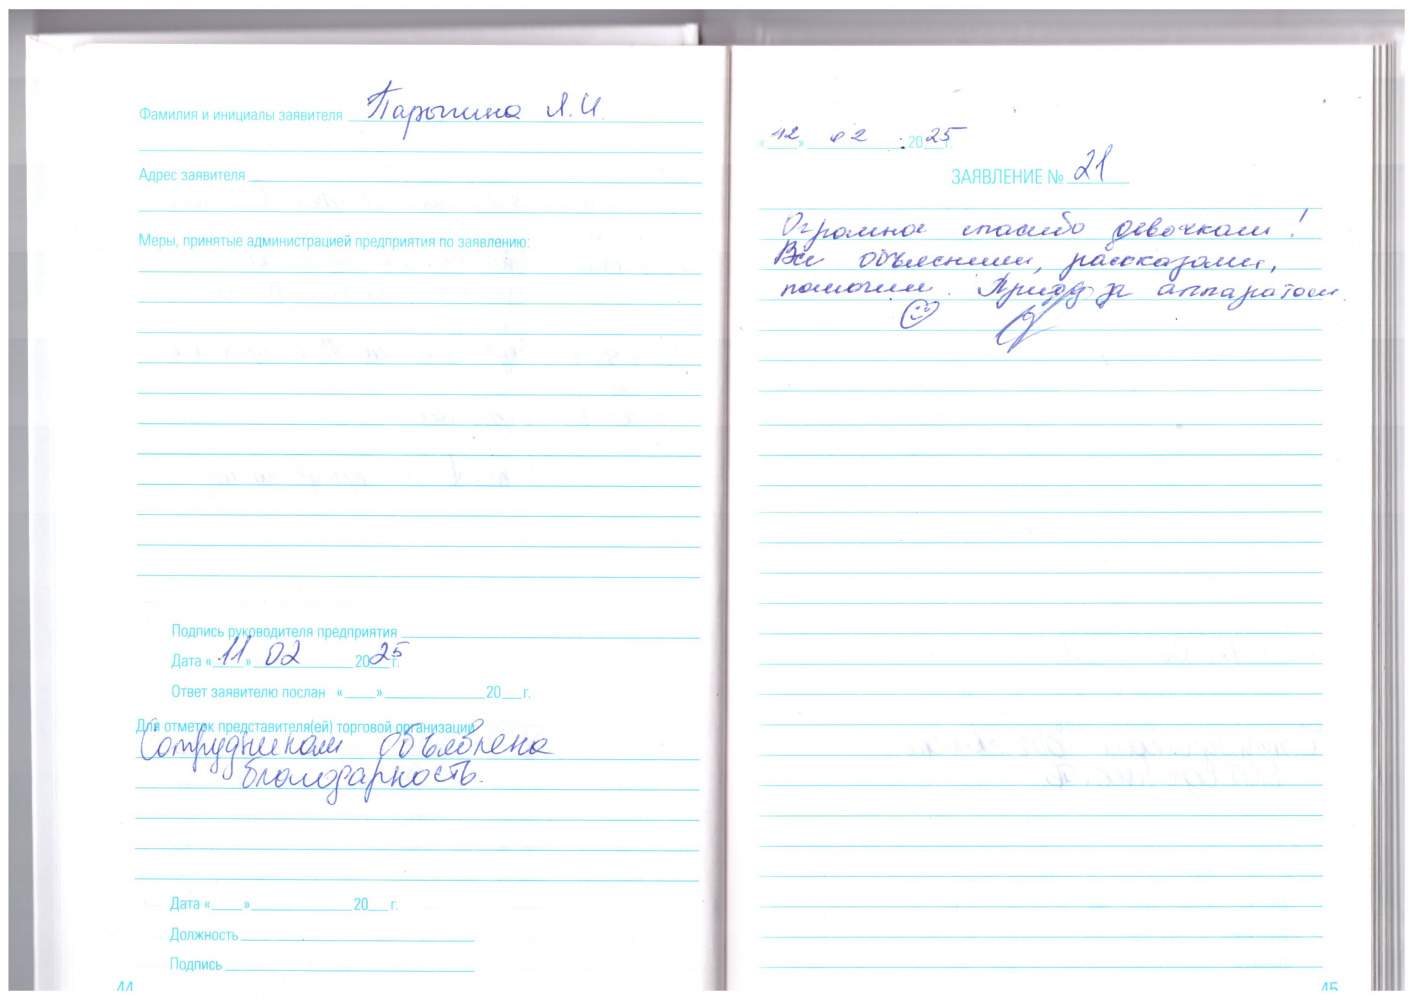 Фамилия и инициалы заявителя Парыгина Я.И.
Адрес заявителя
Меры, принятые администрацией предприятия по заявлению:
Подпись руководителя предприятия
Дата «11» 02 2025 г.
Ответ заявителю послан «____» ____ 20__ г.
Для отметок представителя(ей) торговой организации
Сотрудникам объявлена
благодарность.
Дата «____» ____ 20__ г.
Должность
Подпись
44
«12» 02 2025 г.
ЗАЯВЛЕНИЕ № 21
Огромное спасибо девочкам!
Все объяснили, рассказали,
помогли. Приду за аппаратом.
45